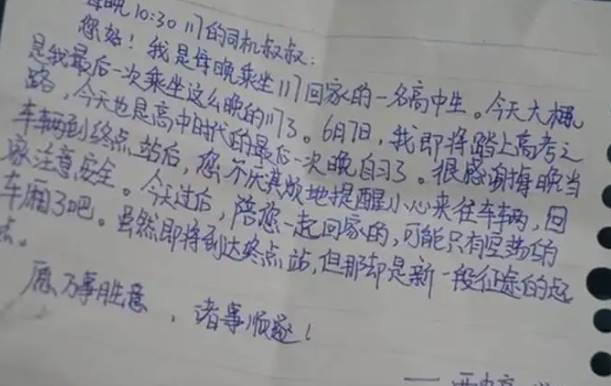 每晚10:30 117的司机叔叔：
您好！我是每晚乘坐117回家的一名高中生。今天大概
是我最后一次乘坐这么晚的117了。6月7日，我即将踏上高考之
路，今天也是高中时代的最后一次晚自习了。很感谢每晚当
车辆到终点站后，您不厌其烦地提醒小心来往车辆，回
家注意安全。今天过后，陪您一起回家的，可能只有空荡的
车厢了吧。虽然即将到达终点站，但那却是新一段征途的起
点。
愿万事胜意，诸事顺遂！
——